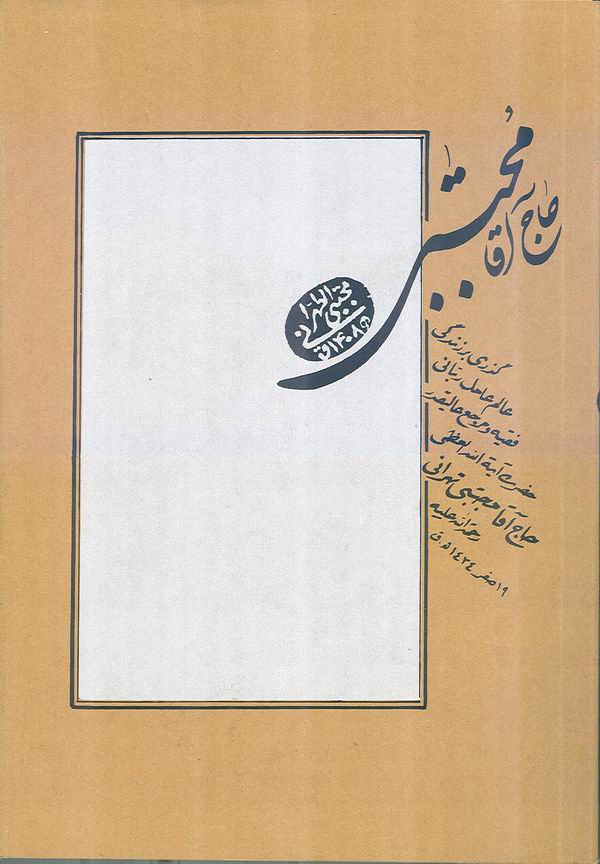 حاج آقا مجتبی
مجتبی الطهرانی
۱۴۰۸ق
گذری بر زندگی
عالم عامل ربانی
فقیه و مرجع عالیقدر
حضرت آیة الله العظمی
حاج آقا مجتبی تهرانی
رحمة الله علیه
۱۹ صفر ۱۴۳۴ ه.ق